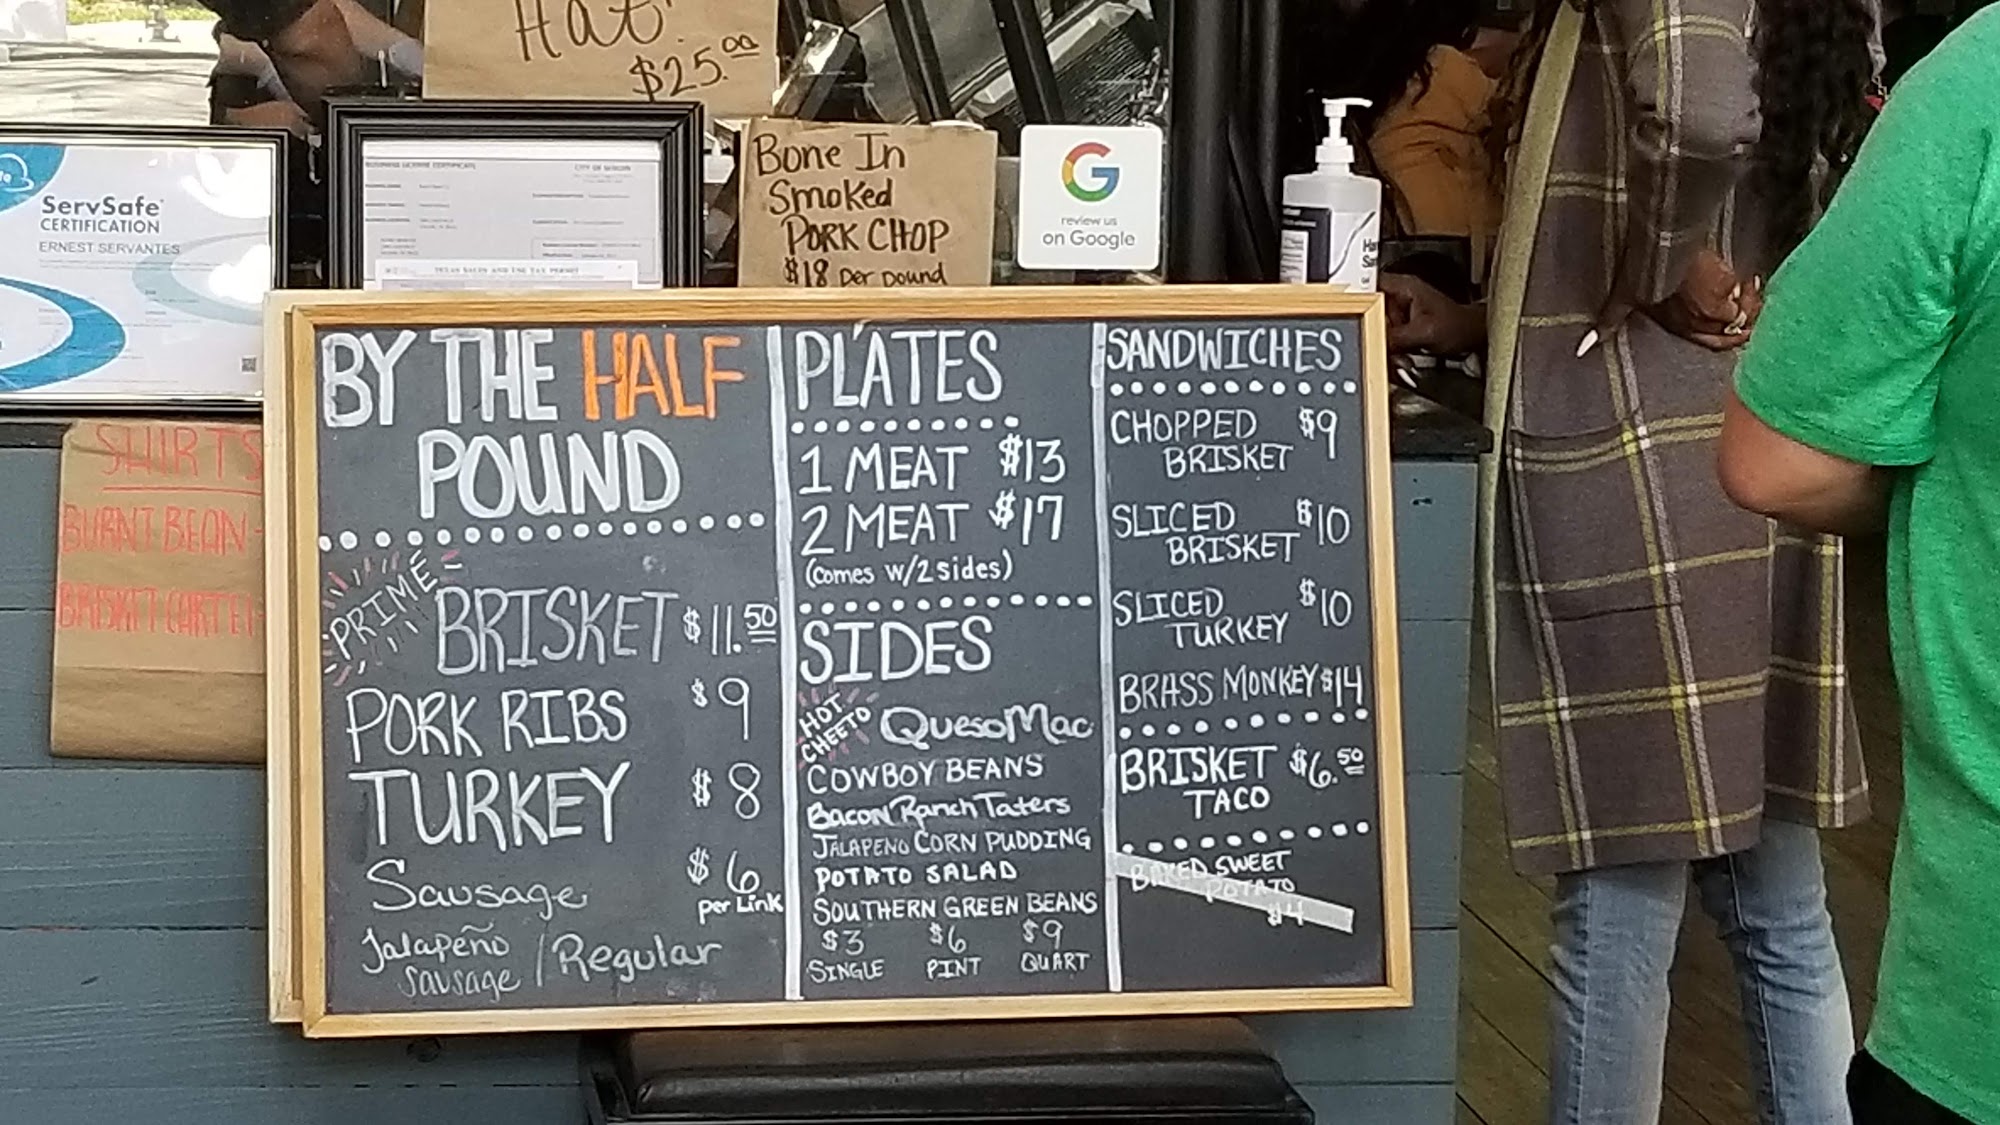 Hat
$25.00
ServSafe®
CERTIFICATION
ERNEST SERVANTES
BUSINESS LICENSE CERTIFICATE
CITY OF SEGUIN
TEXAS SALES AND USE TAX PERMIT
Bone In
Smoked
PORK CHOP
$18 per pound
G
review us
on Google
SHIRTS
BURNT BEAN
BRISKET CARTEL
BY THE HALF
POUND
PRIME
BRISKET $11.50
PORK RIBS $9
TURKEY $8
Sausage $6
per Link
Jalapeño
Sausage / Regular
PLATES
1 MEAT $13
2 MEAT $17
(comes w/2 sides)
SIDES
HOT
CHEETO
QuesoMac
COWBOY BEANS
Bacon Ranch Taters
JALAPENO CORN PUDDING
POTATO SALAD
SOUTHERN GREEN BEANS
$3 $6 $9
SINGLE PINT QUART
SANDWICHES
CHOPPED $9
BRISKET
SLICED $10
BRISKET
SLICED $10
TURKEY
BRASS MONKEY $14
BRISKET $6.50
TACO
BAKED SWEET
POTATO
$4